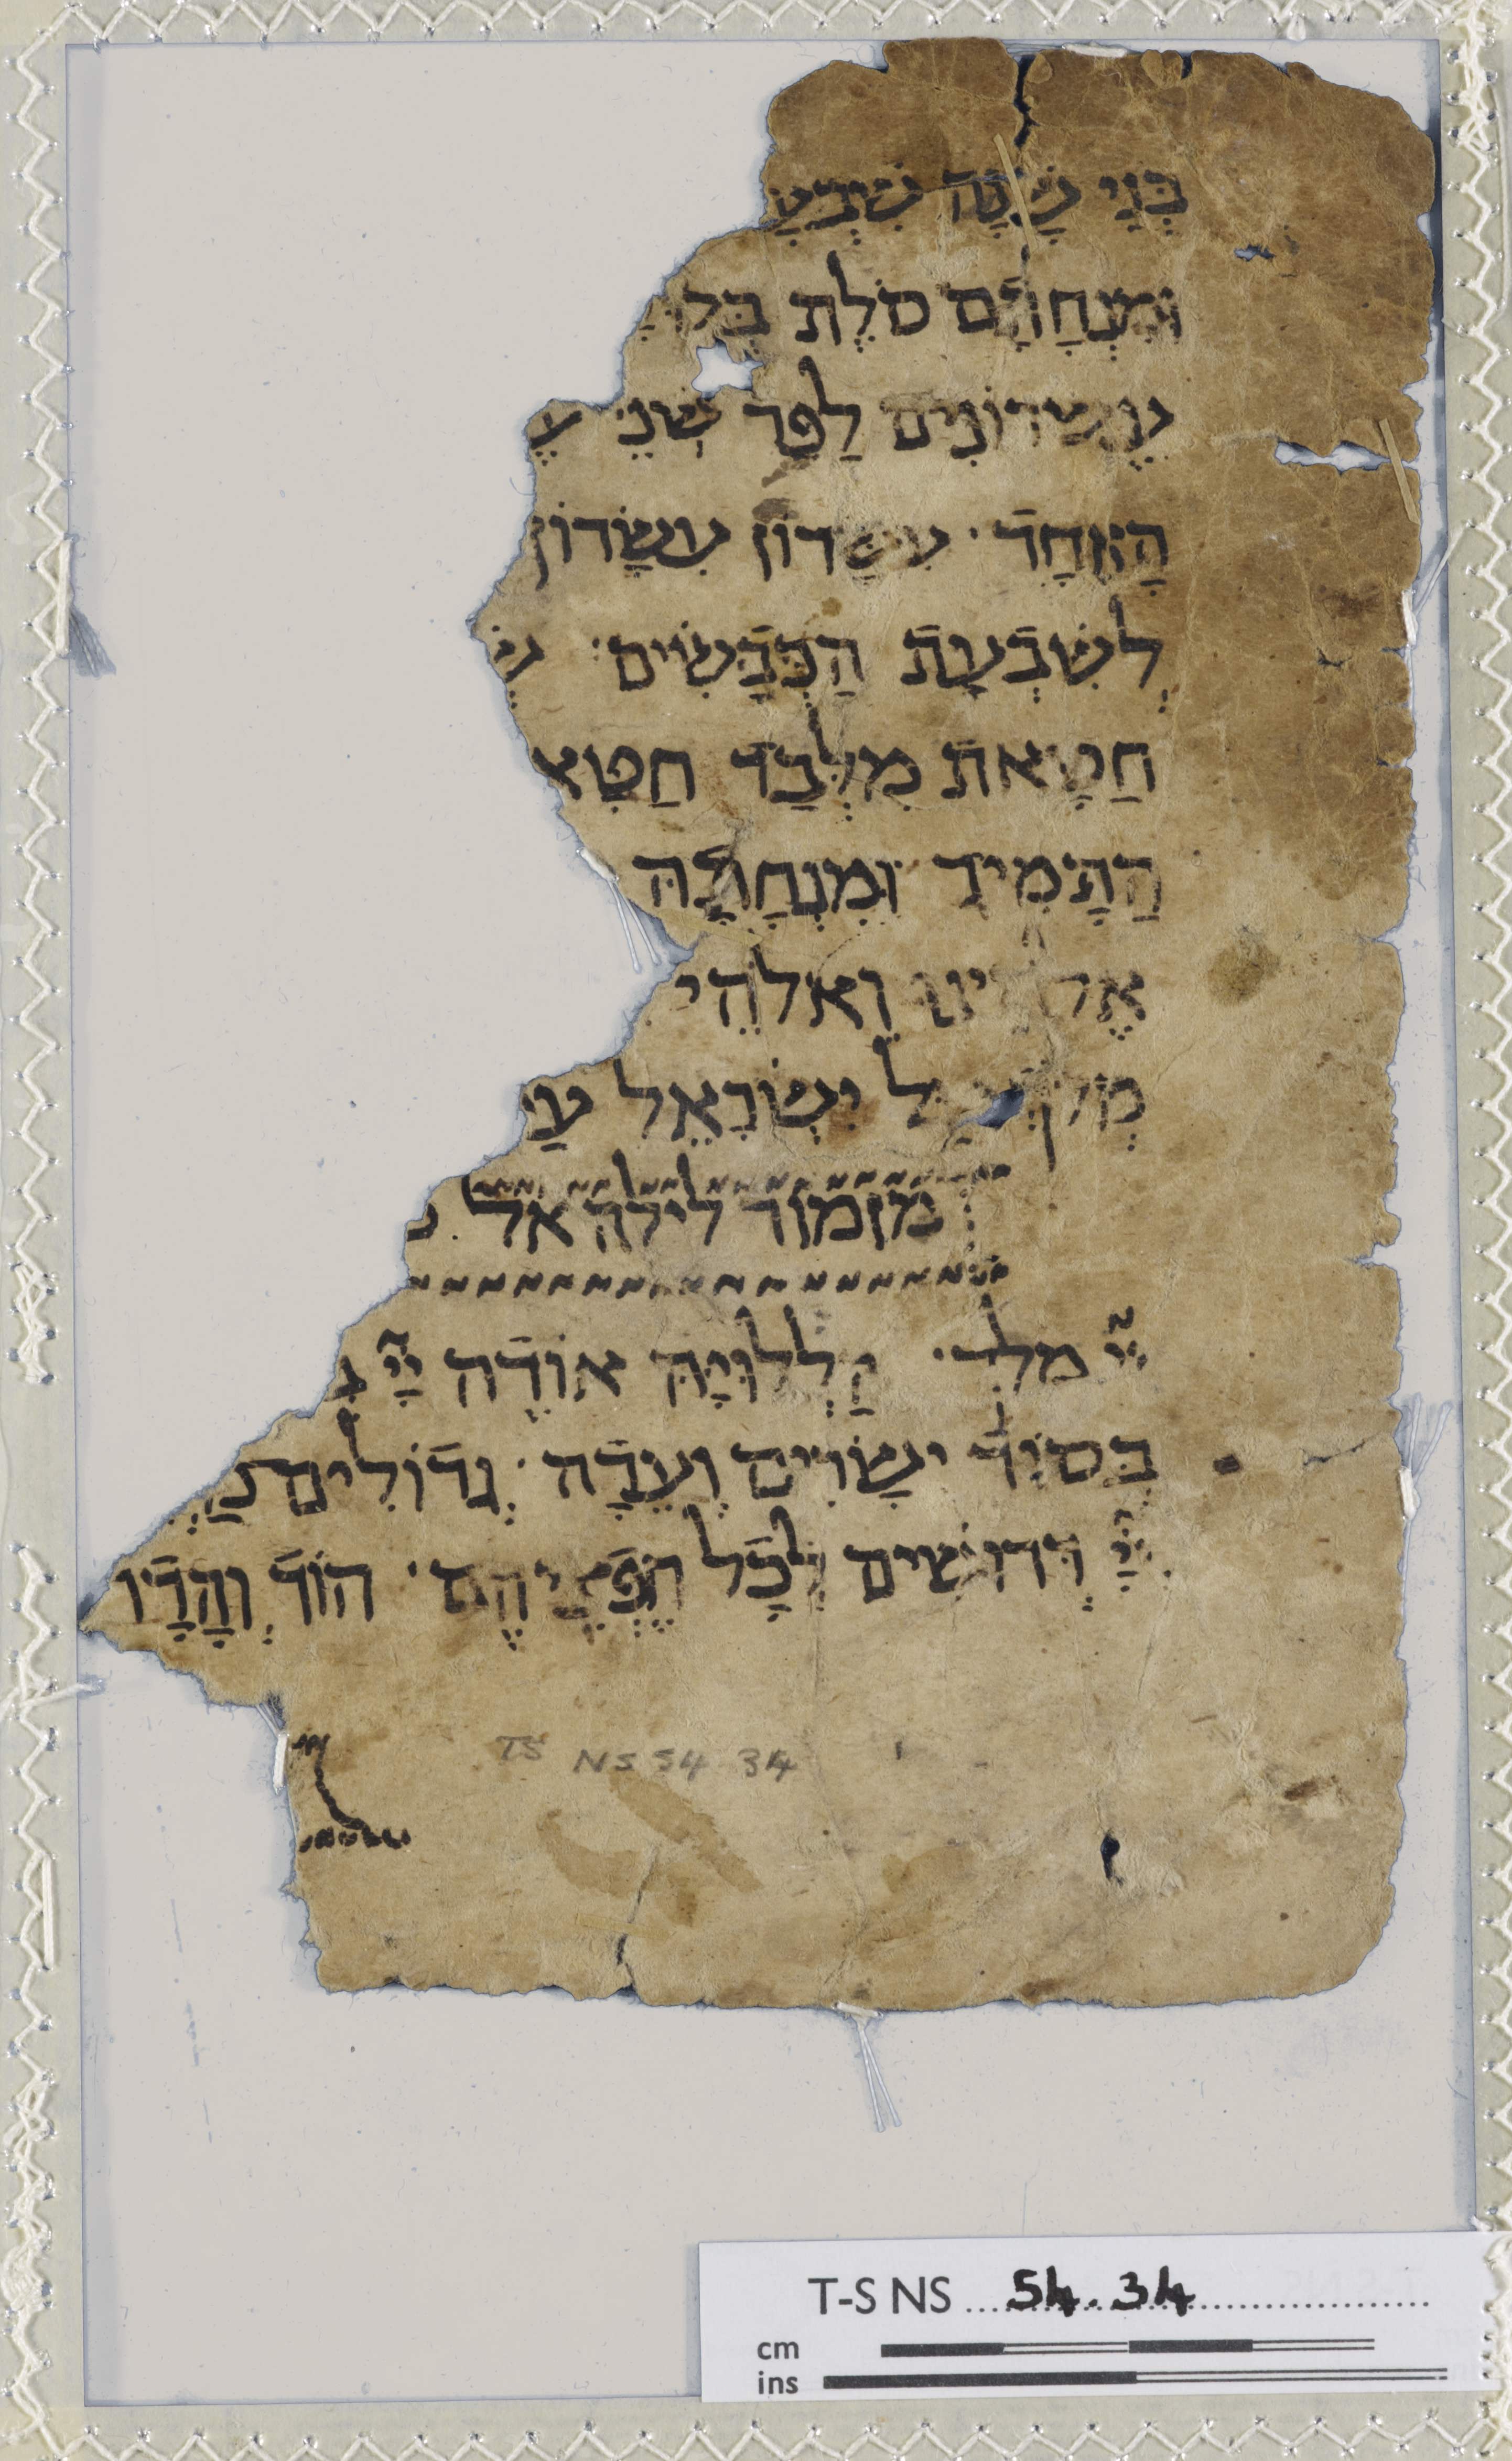 בְּנֵי שָׁנָה שִׁבְעָ
וּמִנְחָתָם סֹלֶת בְּלוּ
עֶשְׂרוֹנִים לַפָּר שְׁנֵי עֶ
הָאֶחָד ׂ עִשָּׂרוֹן עִשָּׂרוֹן
לְשִׁבְעַת הַכְּבָשִׂים ׂ שְׂ
חַטָּאת מִלְּבַד חַטַּא
הַתָּמִיד וּמִנְחָתָהּ
וֵאלֹהֵי
יִשְׂרָאֵל עַ
מזמור לילה אל
יי מלך ׂ הַלְלוּיָהּ אוֹדֶה יָיָ בְּ
בְּסוֹד יְשָׁרִים וְעֵדָה ׂ גְּדוֹלִים מַ
יָיָ דְּרוּשִׁים לְכָל חֶפְצֵיהֶם ׂ הוֹד וְהָדָר
TS NS 54 34
T-S NS 54.34
cm
ins